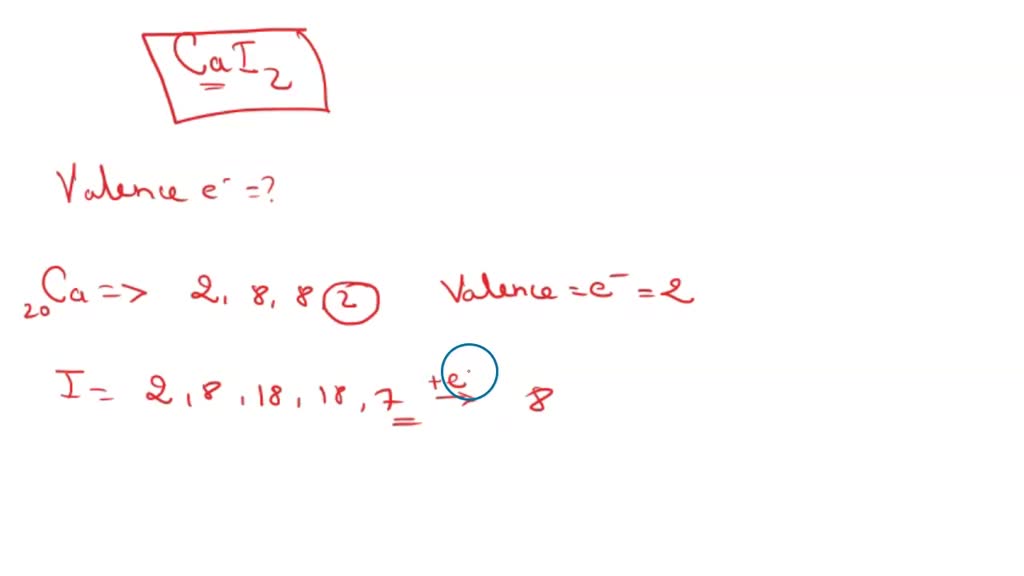 CaI₂
Valence e⁻ = ?
₂₀Ca => 2, 8, 8 2 Valence = e⁻ = 2
I = 2, 8, 18, 18, 7 +e⁻ → 8